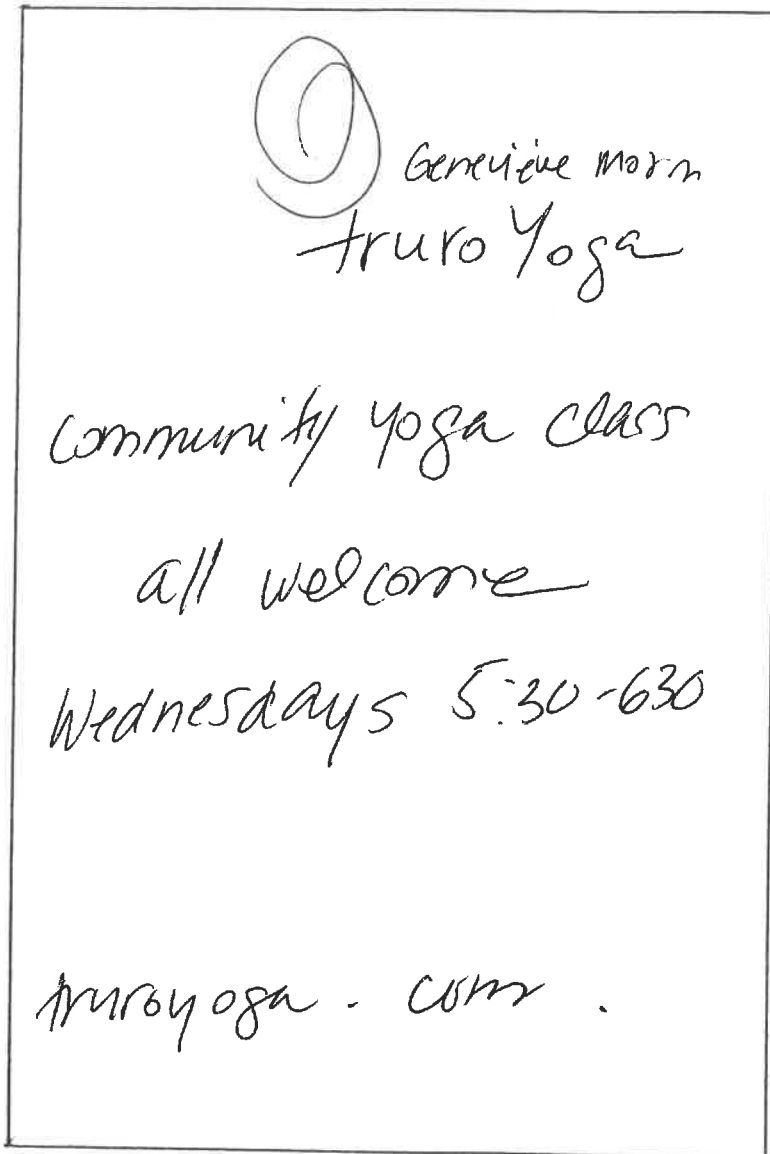 Geneviève Morin
truro Yoga
Community yoga class
all welcome
Wednesdays 5:30-630
truroyoga . com .